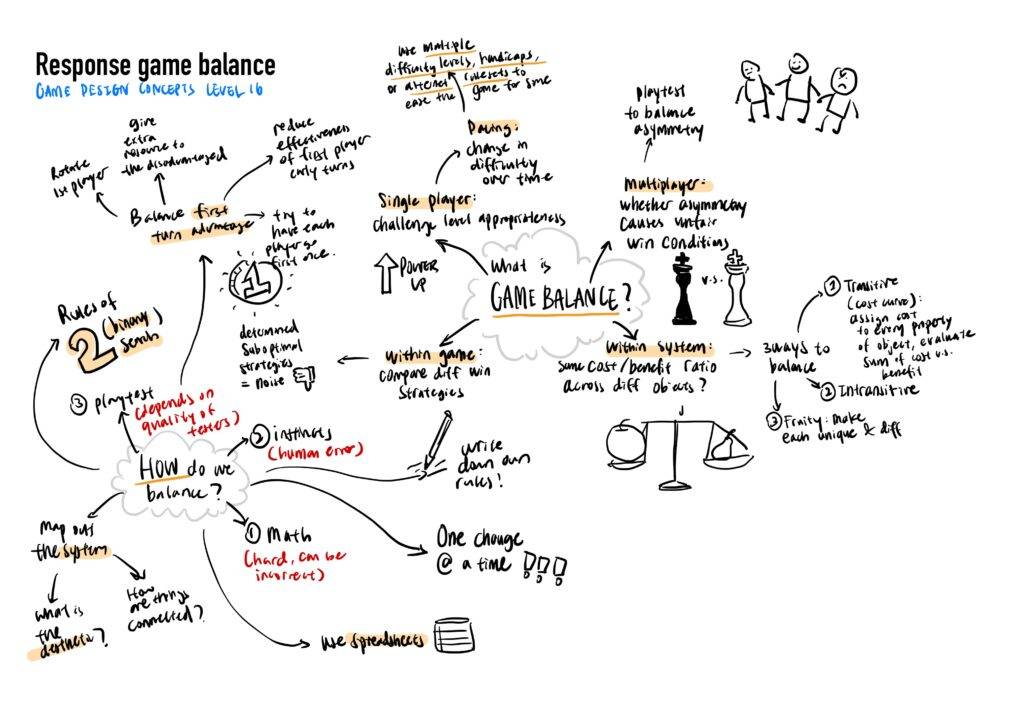 Response game balance
GAME DESIGN CONCEPTS LEVEL 16
use multiple
difficulty levels, handicaps,
or alternet rulesets to
ease the game for some
Pacing:
change in
difficulty
over time
Single player:
challenge level appropriateness
POWER
UP
playtest
to balance
asymmetry
Multiplayer:
whether asymmetry
causes unfair
win conditions
v.s.
What is
GAME BALANCE?
Within game:
compare diff win
strategies
determined
suboptimal
strategies
= noise
Within system:
same cost/benefit ratio
across diff objects?
3 ways to
balance
① Transitive
(cost curve):
assign cost
to every property
of object, evaluate
sum of cost v.s.
benefit
② Intransitive
③ Fruity: make
each unique & diff
Rotate
1st player
give
extra
resource to
the disadvantaged
reduce
effectiveness
of first player
early turns
Balance first
turn advantage
try to
have each
player go
first once.
1
Rules of
2 (binary)
search
③ playtest
(depends on
quality of
testers)
② instincts
(human error)
HOW do we
balance?
① Math
(hard, can be
incorrect)
write
down own
rules!
One change
@ a time
use spreadsheets
Map out
the system
what is
the aesthetic?
How
are things
connected?